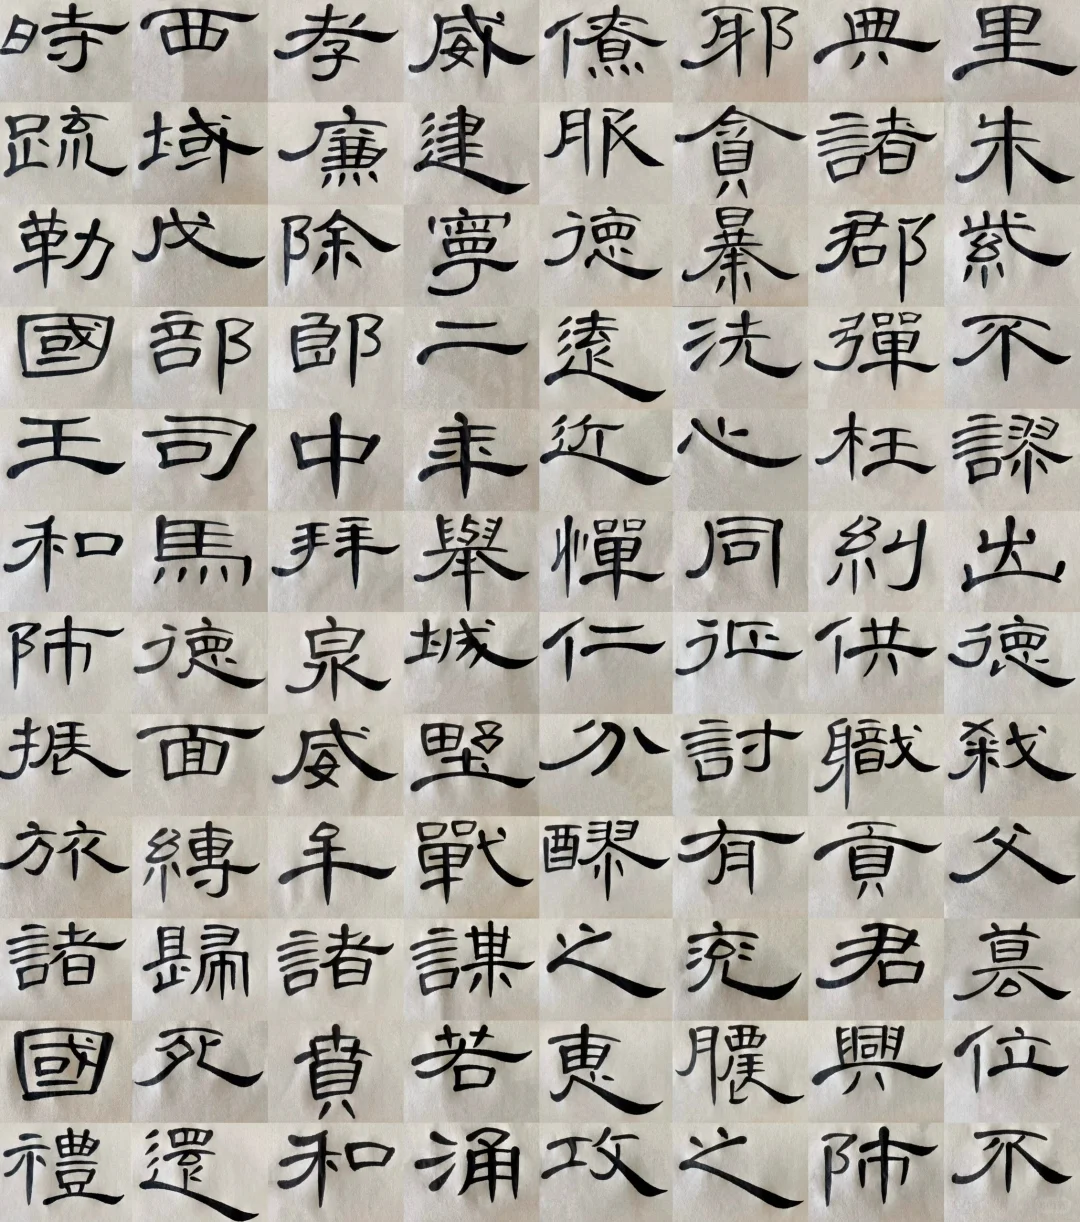 里朱紫不謬出
典諸郡彈枉糾
邪貪暴洗心同
僚服德遠近憚
威建寧二年舉
孝廉除郎中拜
西域戊部司馬
時疏勒國王和
德弒父篡位不
供職貢君興師
征討有兗膿之
仁分醪之惠攻
城野戰謀若涌
泉威牟諸賁和
德面縛歸死還
師振旅諸國禮